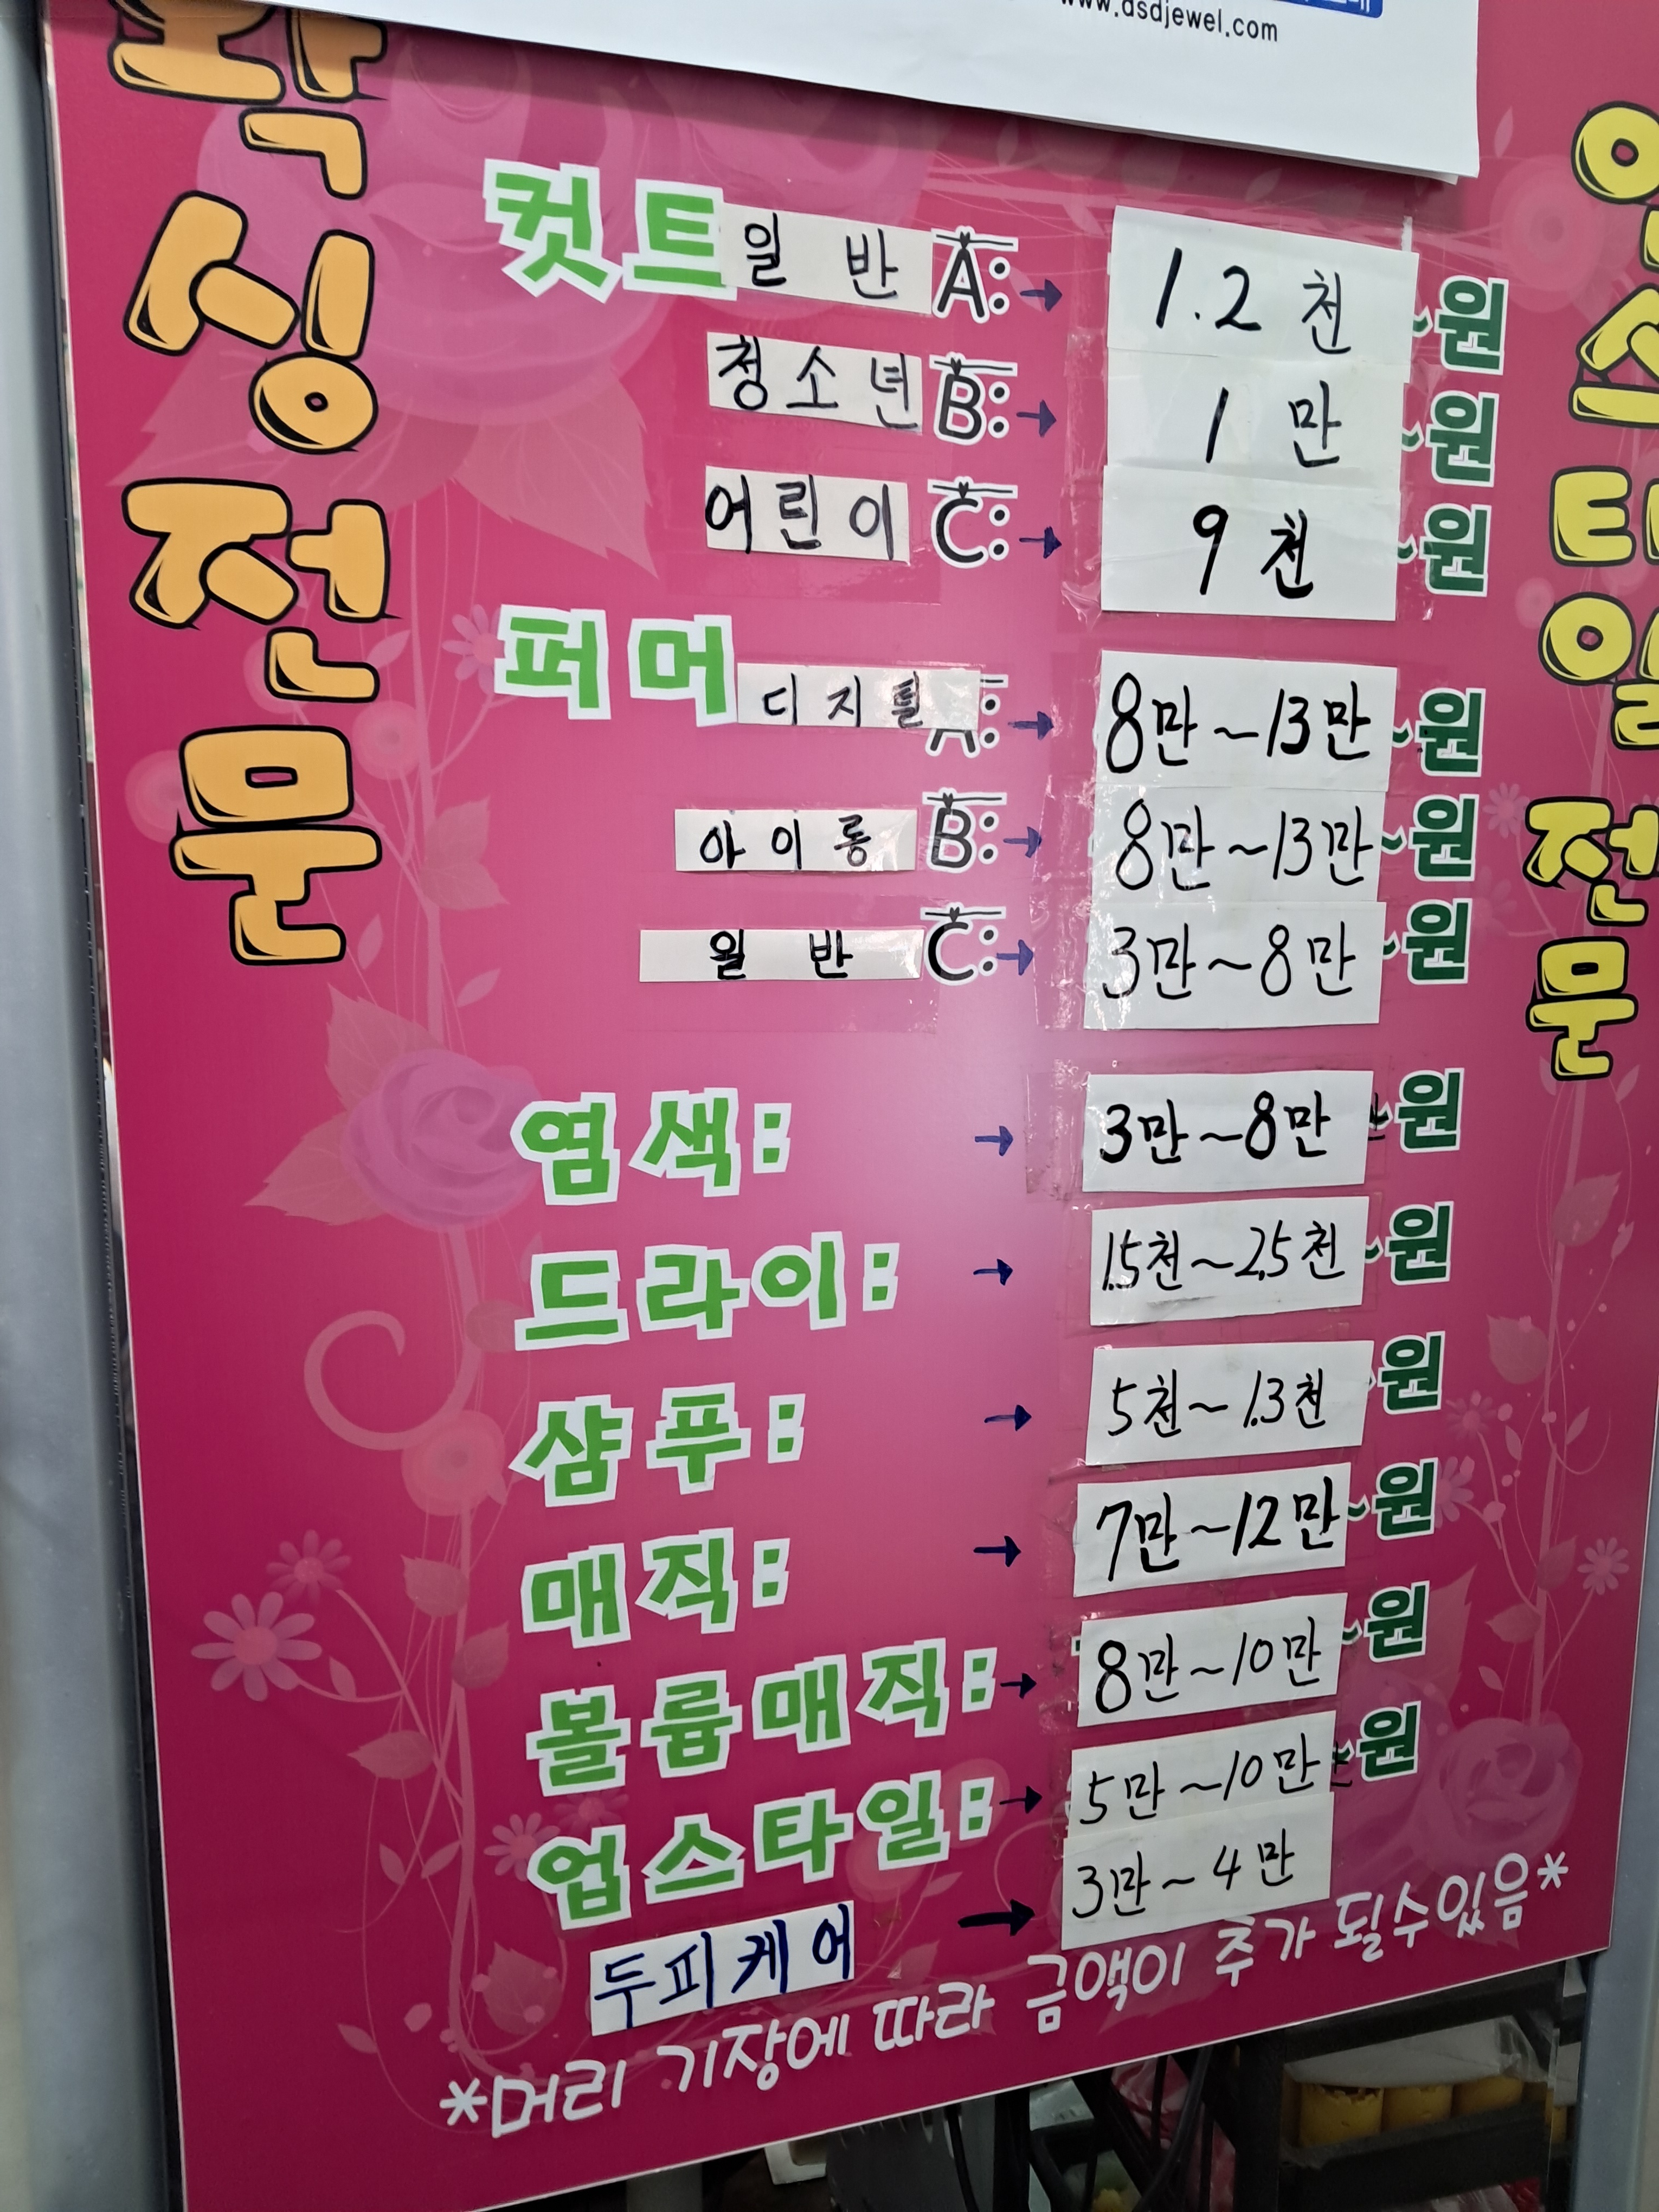 www.dsdjewel.com
왁싱전문
컷트 일반 A: → 1.2천 ~원
청소년 B: → 1만 ~원
어린이 C: → 9천 ~원
퍼머 디지털 A: → 8만~13만 ~원
아이롱 B: → 8만~13만 ~원
일반 C: → 3만~8만 ~원
염색: → 3만~8만 원
드라이: → 1.5천~2.5천 ~원
샴푸: → 5천~1.3천 원
매직: → 7만~12만 ~원
볼륨매직: → 8만~10만 ~원
업스타일: → 5만~10만 원
두피케어 → 3만~4만
*머리 기장에 따라 금액이 추가 될수있음*
업스타일 전문